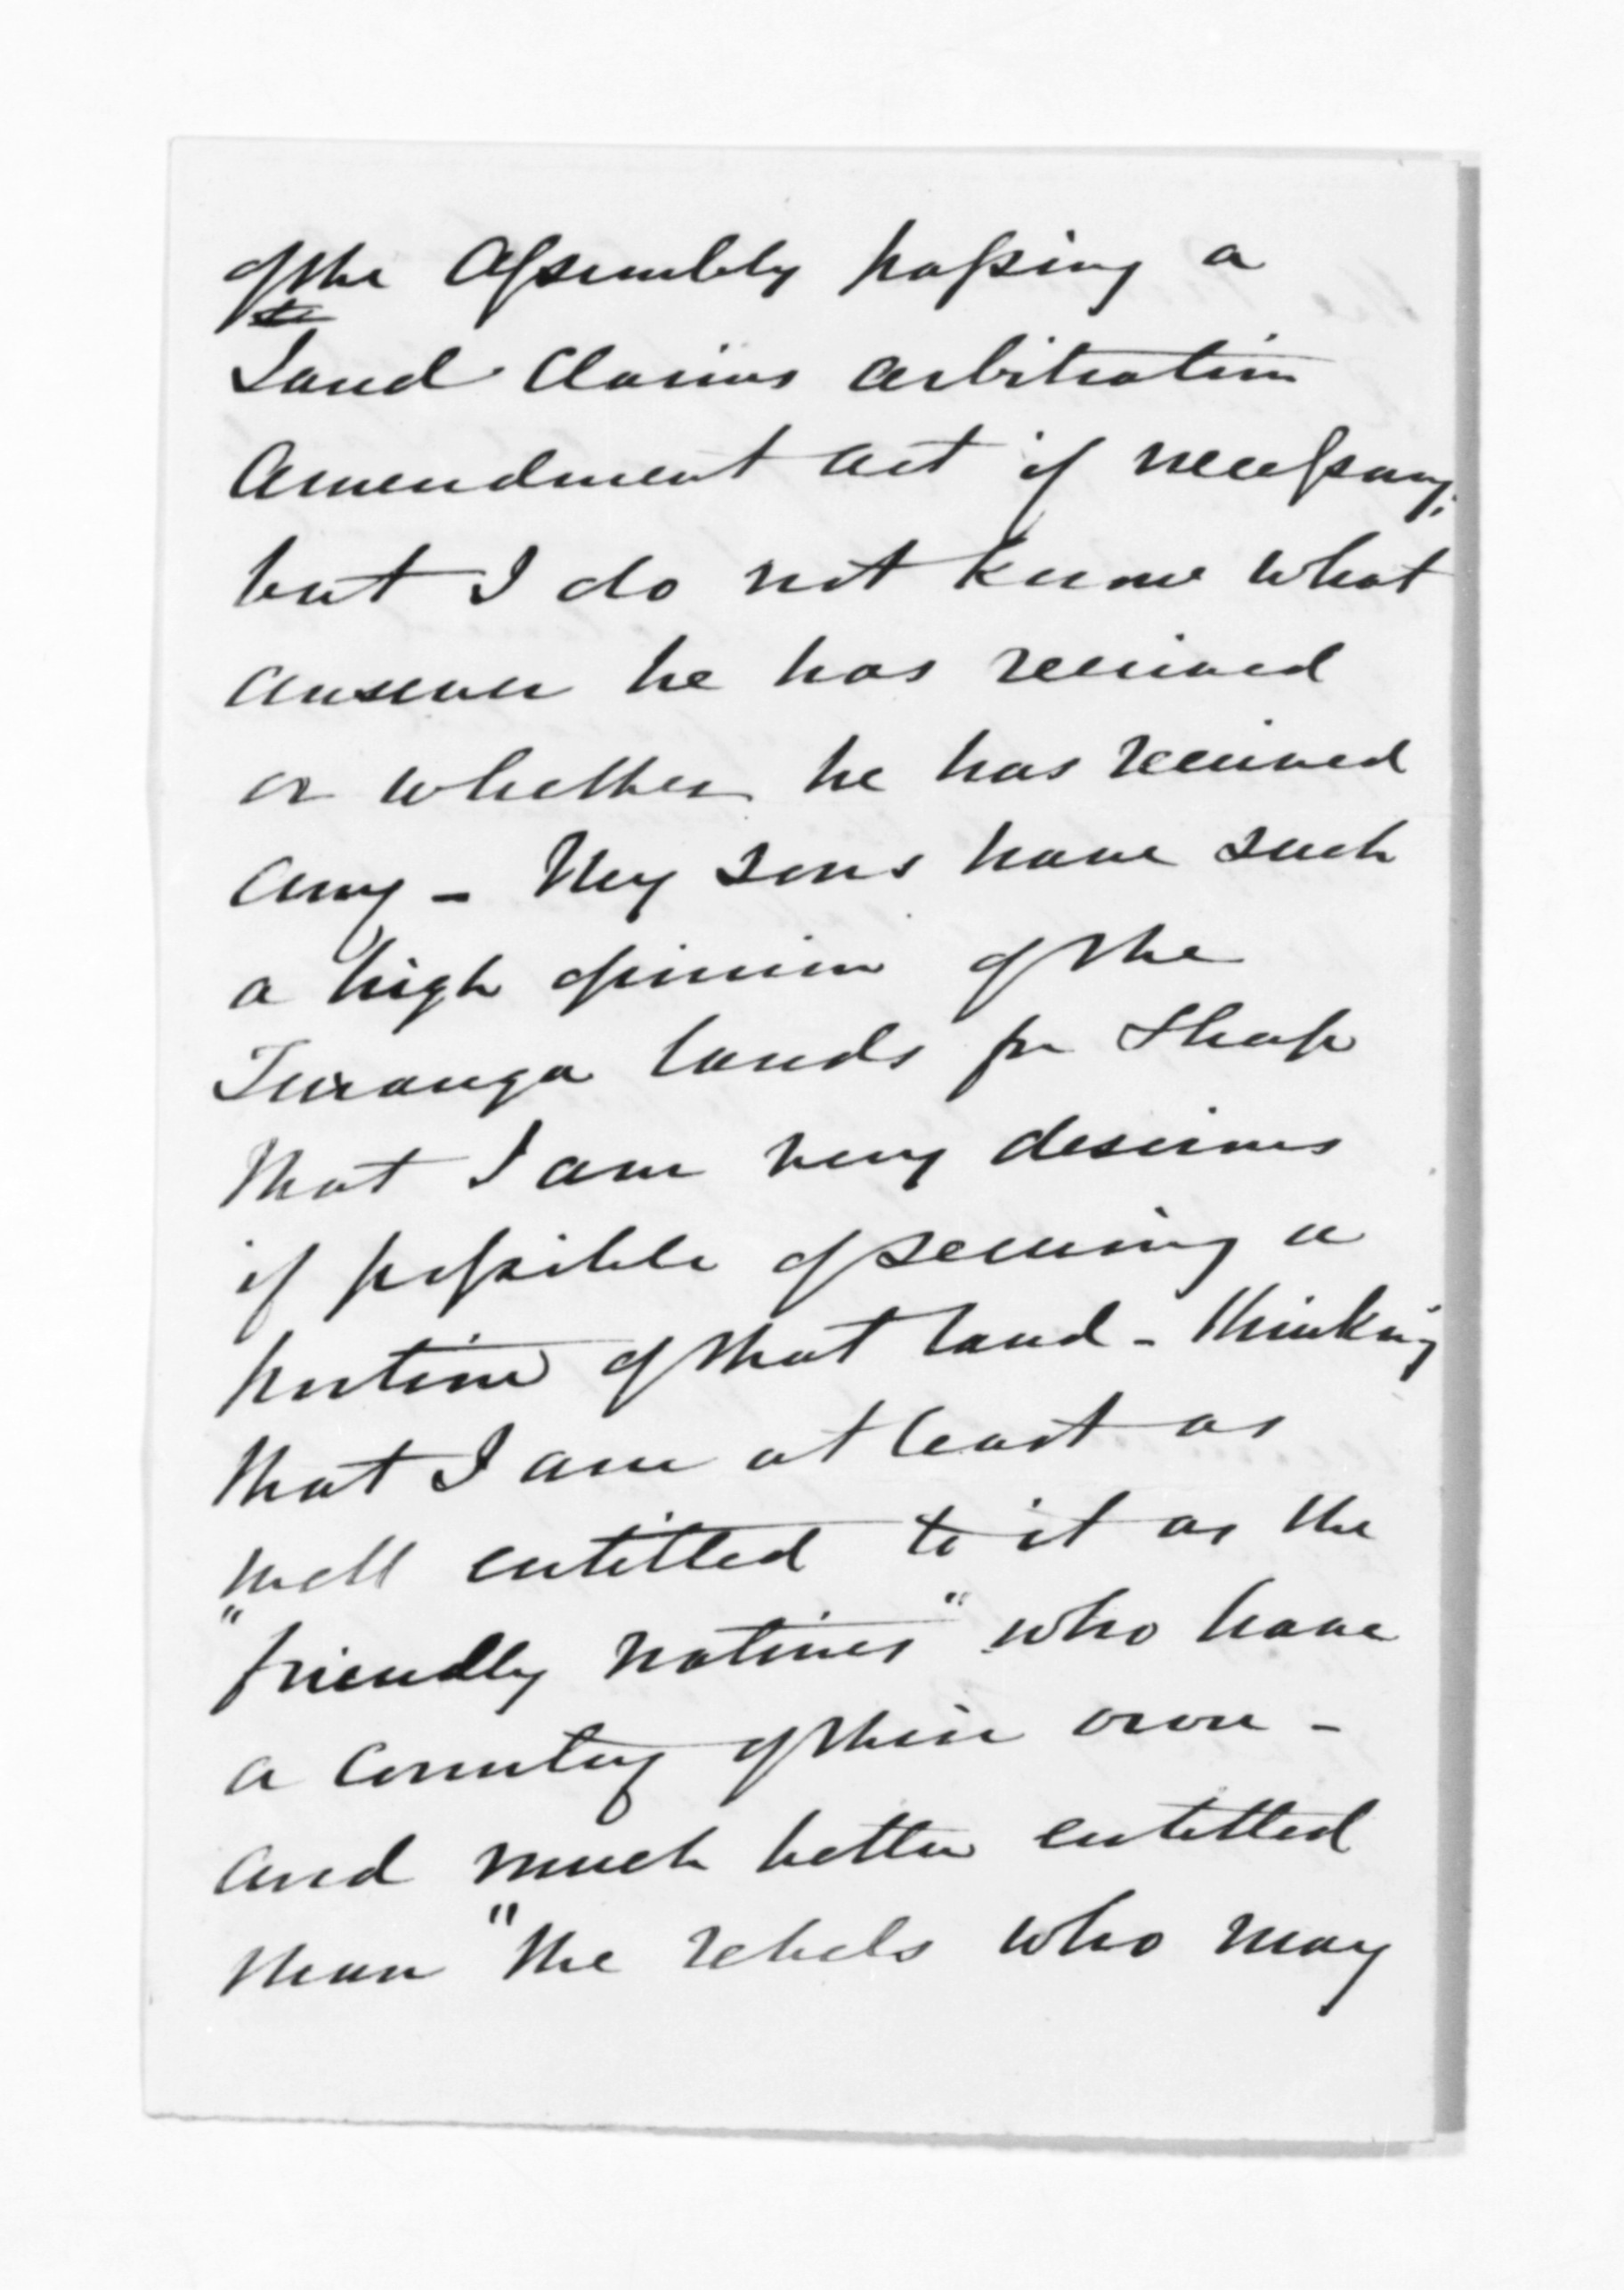 of the Assembly passing a
Land Claims arbitration
Amendment act if necessary;
but I do not know what
answer he has received
or whether he has received
any - My sons have such
a high opinion of the
Turanga lands for Sheep
that I am very desirous
if possible of securing a
portion of that land - thinking
that I am at least as
well entitled to it as the
"friendly natives" who have
a Country of their own -
and much better entitled
than "the rebels who may